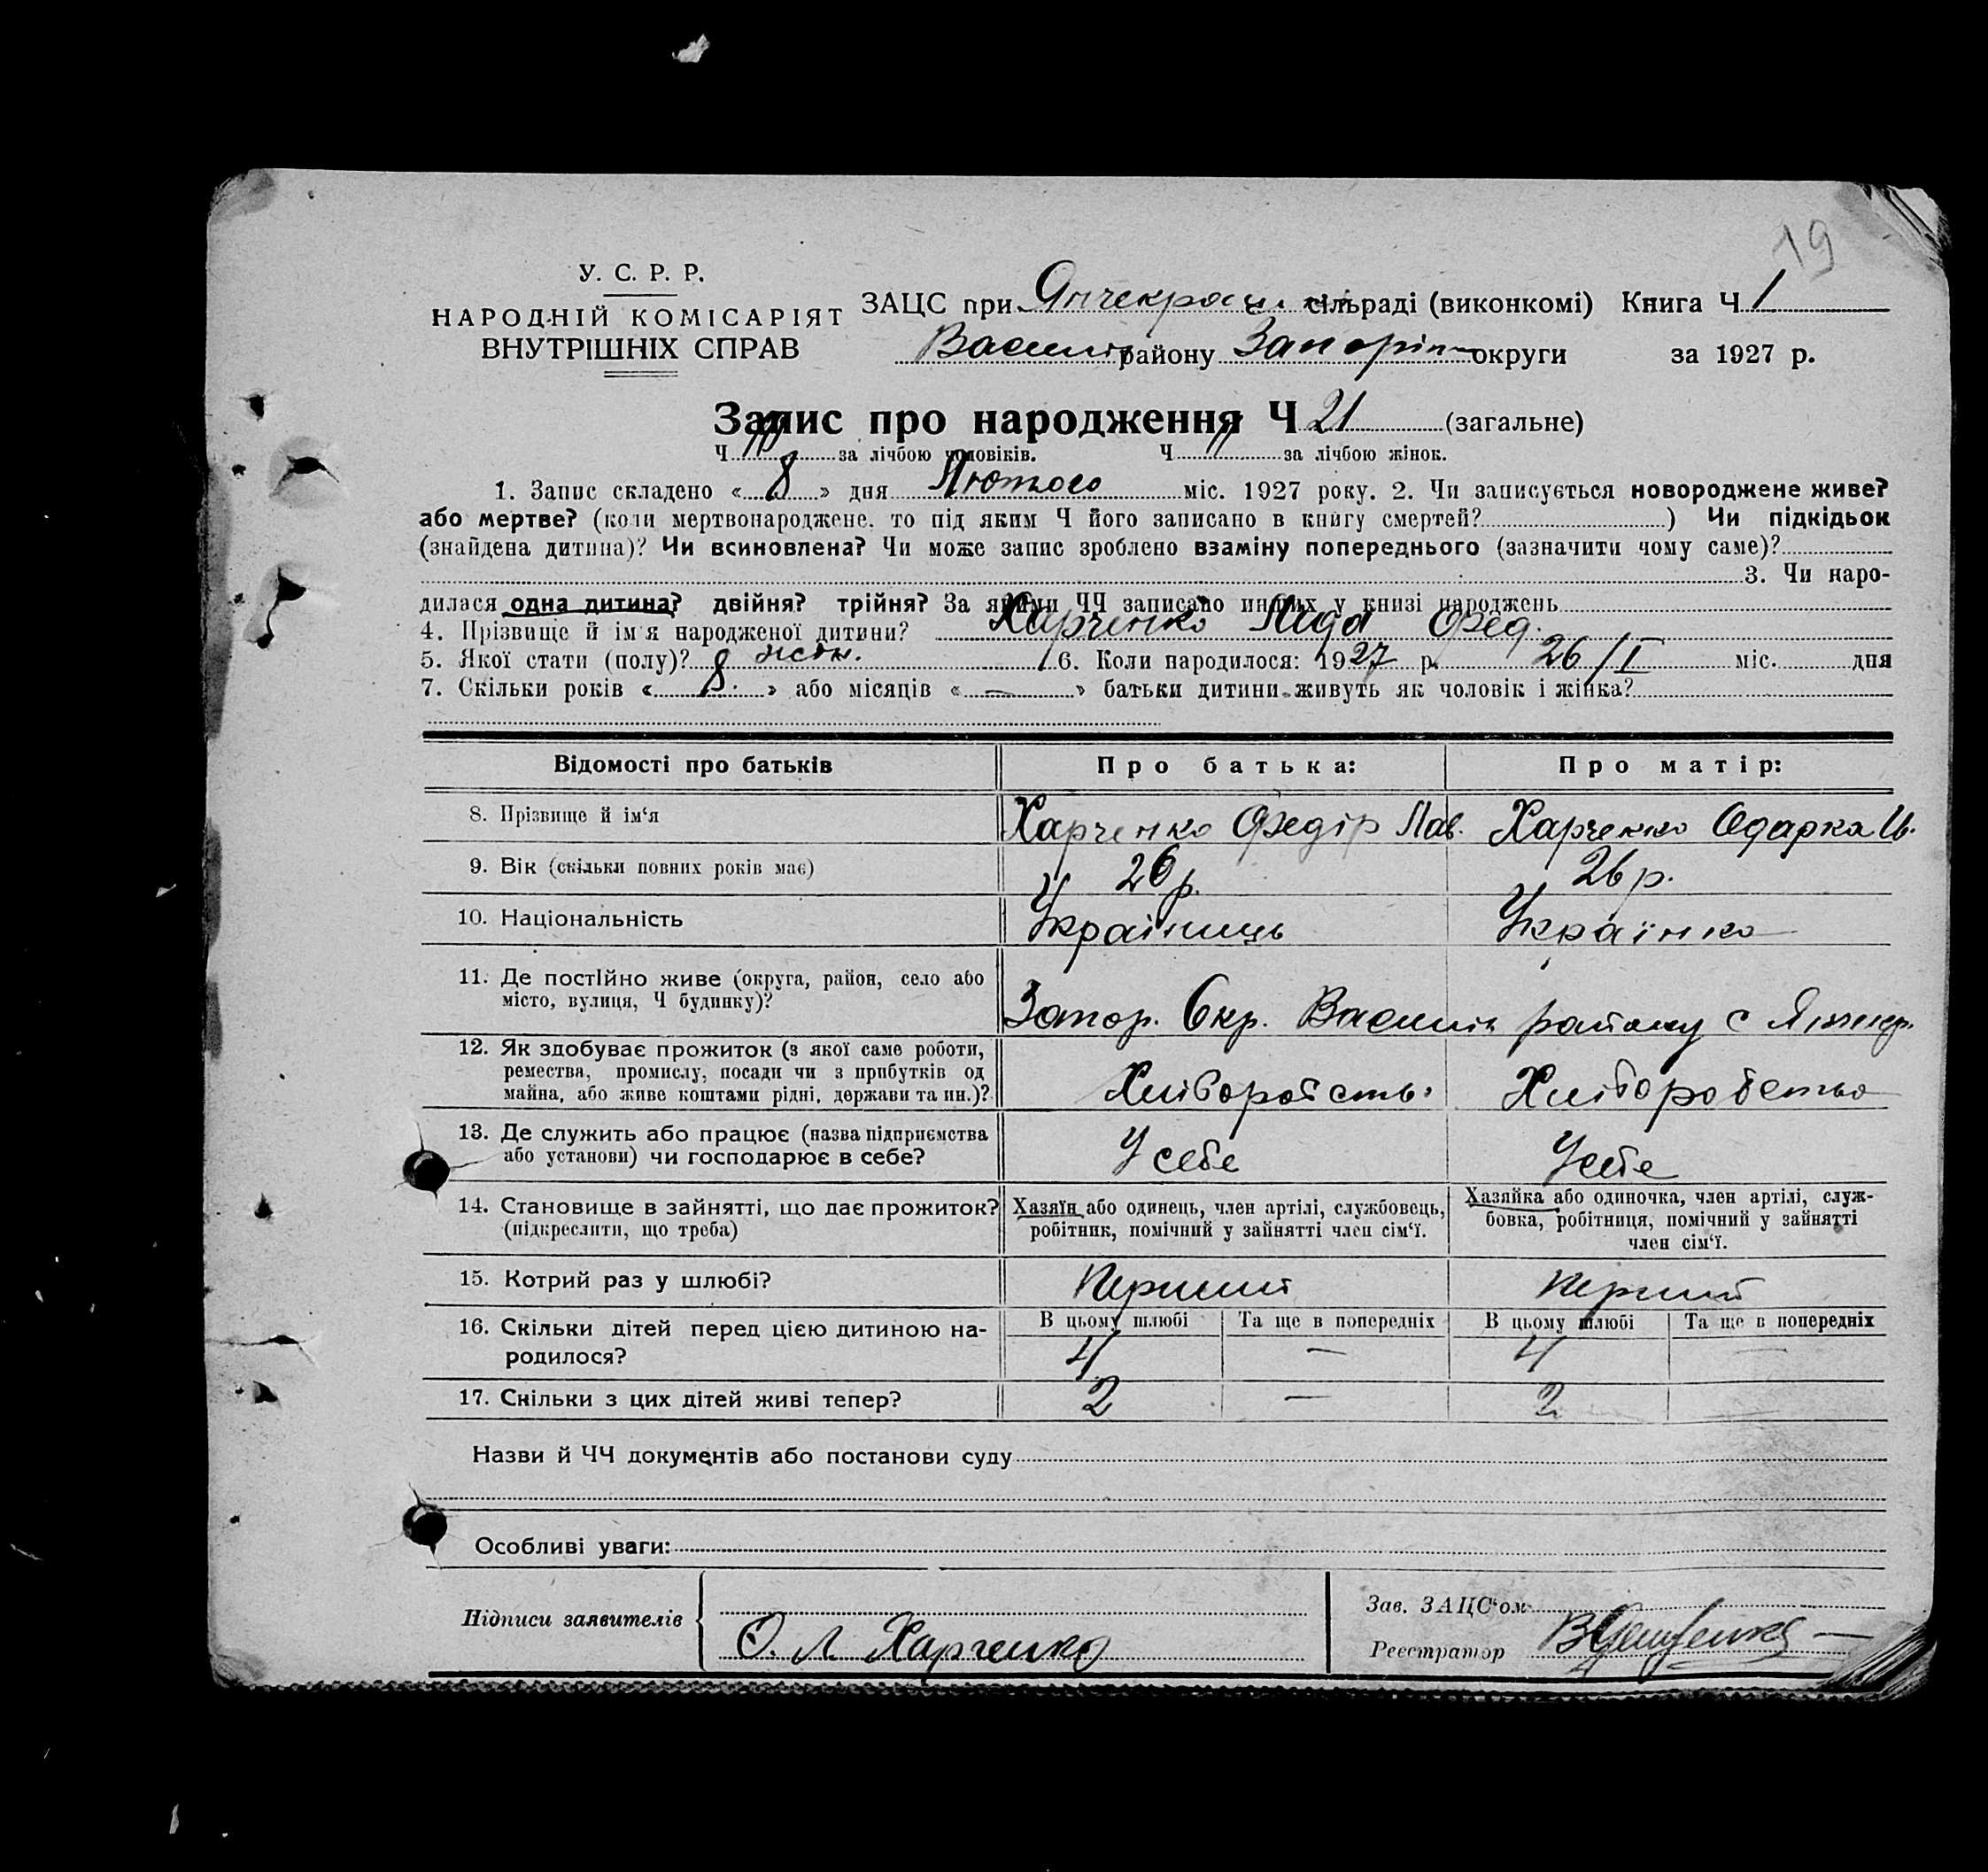 19
У. С. Р. Р.
НАРОДНІЙ КОМІСАРІЯТ
ВНУТРІШНІХ СПРАВ
ЗАЦС при Янчекрац. сільраді (виконкомі) Книга Ч 1
Василів району Запоріж округи за 1927 р.
Запис про народження Ч 21 (загальне)
Ч 10 за лічбою чоловіків. Ч 11 за лічбою жінок.
1. Запис складено « 8 » дня Лютого міс. 1927 року. 2. Чи записується новороджене живе?
або мертве? (коли мертвонароджене, то під яким Ч його записано в книгу смертей? ) Чи підкідьок
(знайдена дитина)? Чи всиновлена? Чи може запис зроблено взаміну попереднього (зазначити чому саме)?
3. Чи наро-
дилася одна дитина? двійня? трійня? За якими ЧЧ записано инших у книзі народжень
4. Прізвище й ім'я народженої дитини? Харченко Лида Фед.
5. Якої стати (полу)? жін. 6. Коли народилося: 1927 р. 26/I міс. дня
7. Скільки років « 8. » або місяців « — » батьки дитини живуть як чоловік і жінка?
Відомості про батьків Про батька: Про матір:
8. Прізвище й ім'я Харченко Федір Лав. Харченко Одарка Ів.
9. Вік (скільки повних років має) 26 р. 26 р.
10. Національність Українець Українка
11. Де постійно живе (округа, район, село або
місто, вулиця, Ч будинку)? Запор. Окр. Василів району с Янчекр.
12. Як здобуває прожиток (з якої саме роботи,
ремества, промислу, посади чи з прибутків од
майна, або живе коштами рідні, держави та ин.)? Хліборобств. Хліборобство
13. Де служить або працює (назва підприємства
або установи) чи господарює в себе? У себе У себе
14. Становище в зайнятті, що дає прожиток?
(підкреслити, що треба)
Хазяїн або одинець, член артілі, службовець,
робітник, помічний у зайнятті член сім'ї.
Хазяйка або одиночка, член артілі, служ-
бовка, робітниця, помічний у зайнятті
член сім'ї.
15. Котрий раз у шлюбі? Перший перший
16. Скільки дітей перед цією дитиною на-
родилося?
В цьому шлюбі Та ще в попередніх В цьому шлюбі Та ще в попередніх
4 — 4 —
17. Скільки з цих дітей живі тепер? 2 — 2 —
Назви й ЧЧ документів або постанови суду
Особливі уваги:
Підписи заявителів
Ф. Л. Харченко
Зав. ЗАЦС'ом
Реєстратор